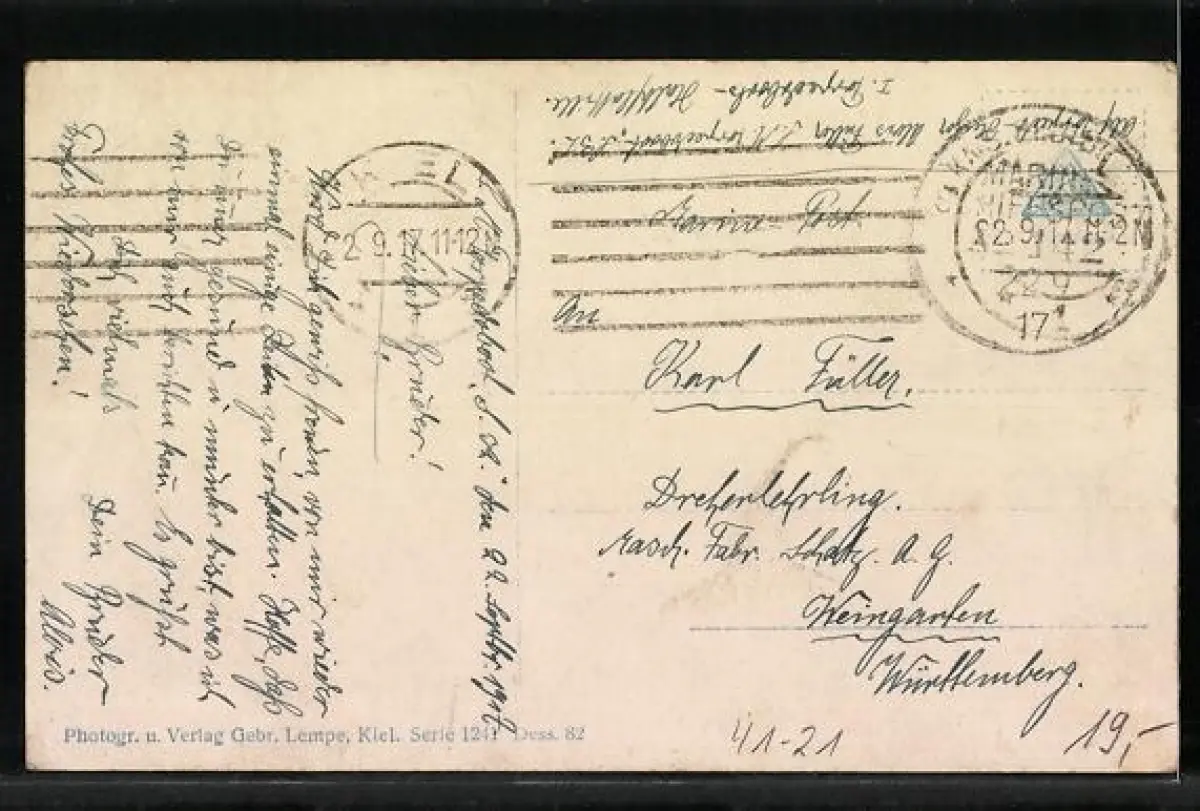 Torpedoboot S. M. den 22. Septbr. 1917
Lieber Bruder!
Wirst Dich gewiss freuen, von mir wieder
einmal einige Zeilen zu erhalten. Hoffe, daß
Du immer gesund u. munter bist, was ich
von mir auch berichten kann. Es grüßt
Dich vielmals Dein Bruder
Alois.
Frohes Wiedersehen!
Abs. Alois Füller S. M. Torpedoboot
I. Torpedoboots-Halbflottille.
Marine-Post
MARINE
2.9.17.11-12
22.9
17
An
Karl Füller.
Dreherlehrling.
Masch. Fabr. Schatz. A. G.
Weingarten
Württemberg.
Photogr. u. Verlag Gebr. Lempe, Kiel. Serie 1241 Dess. 82
41-21
19,-